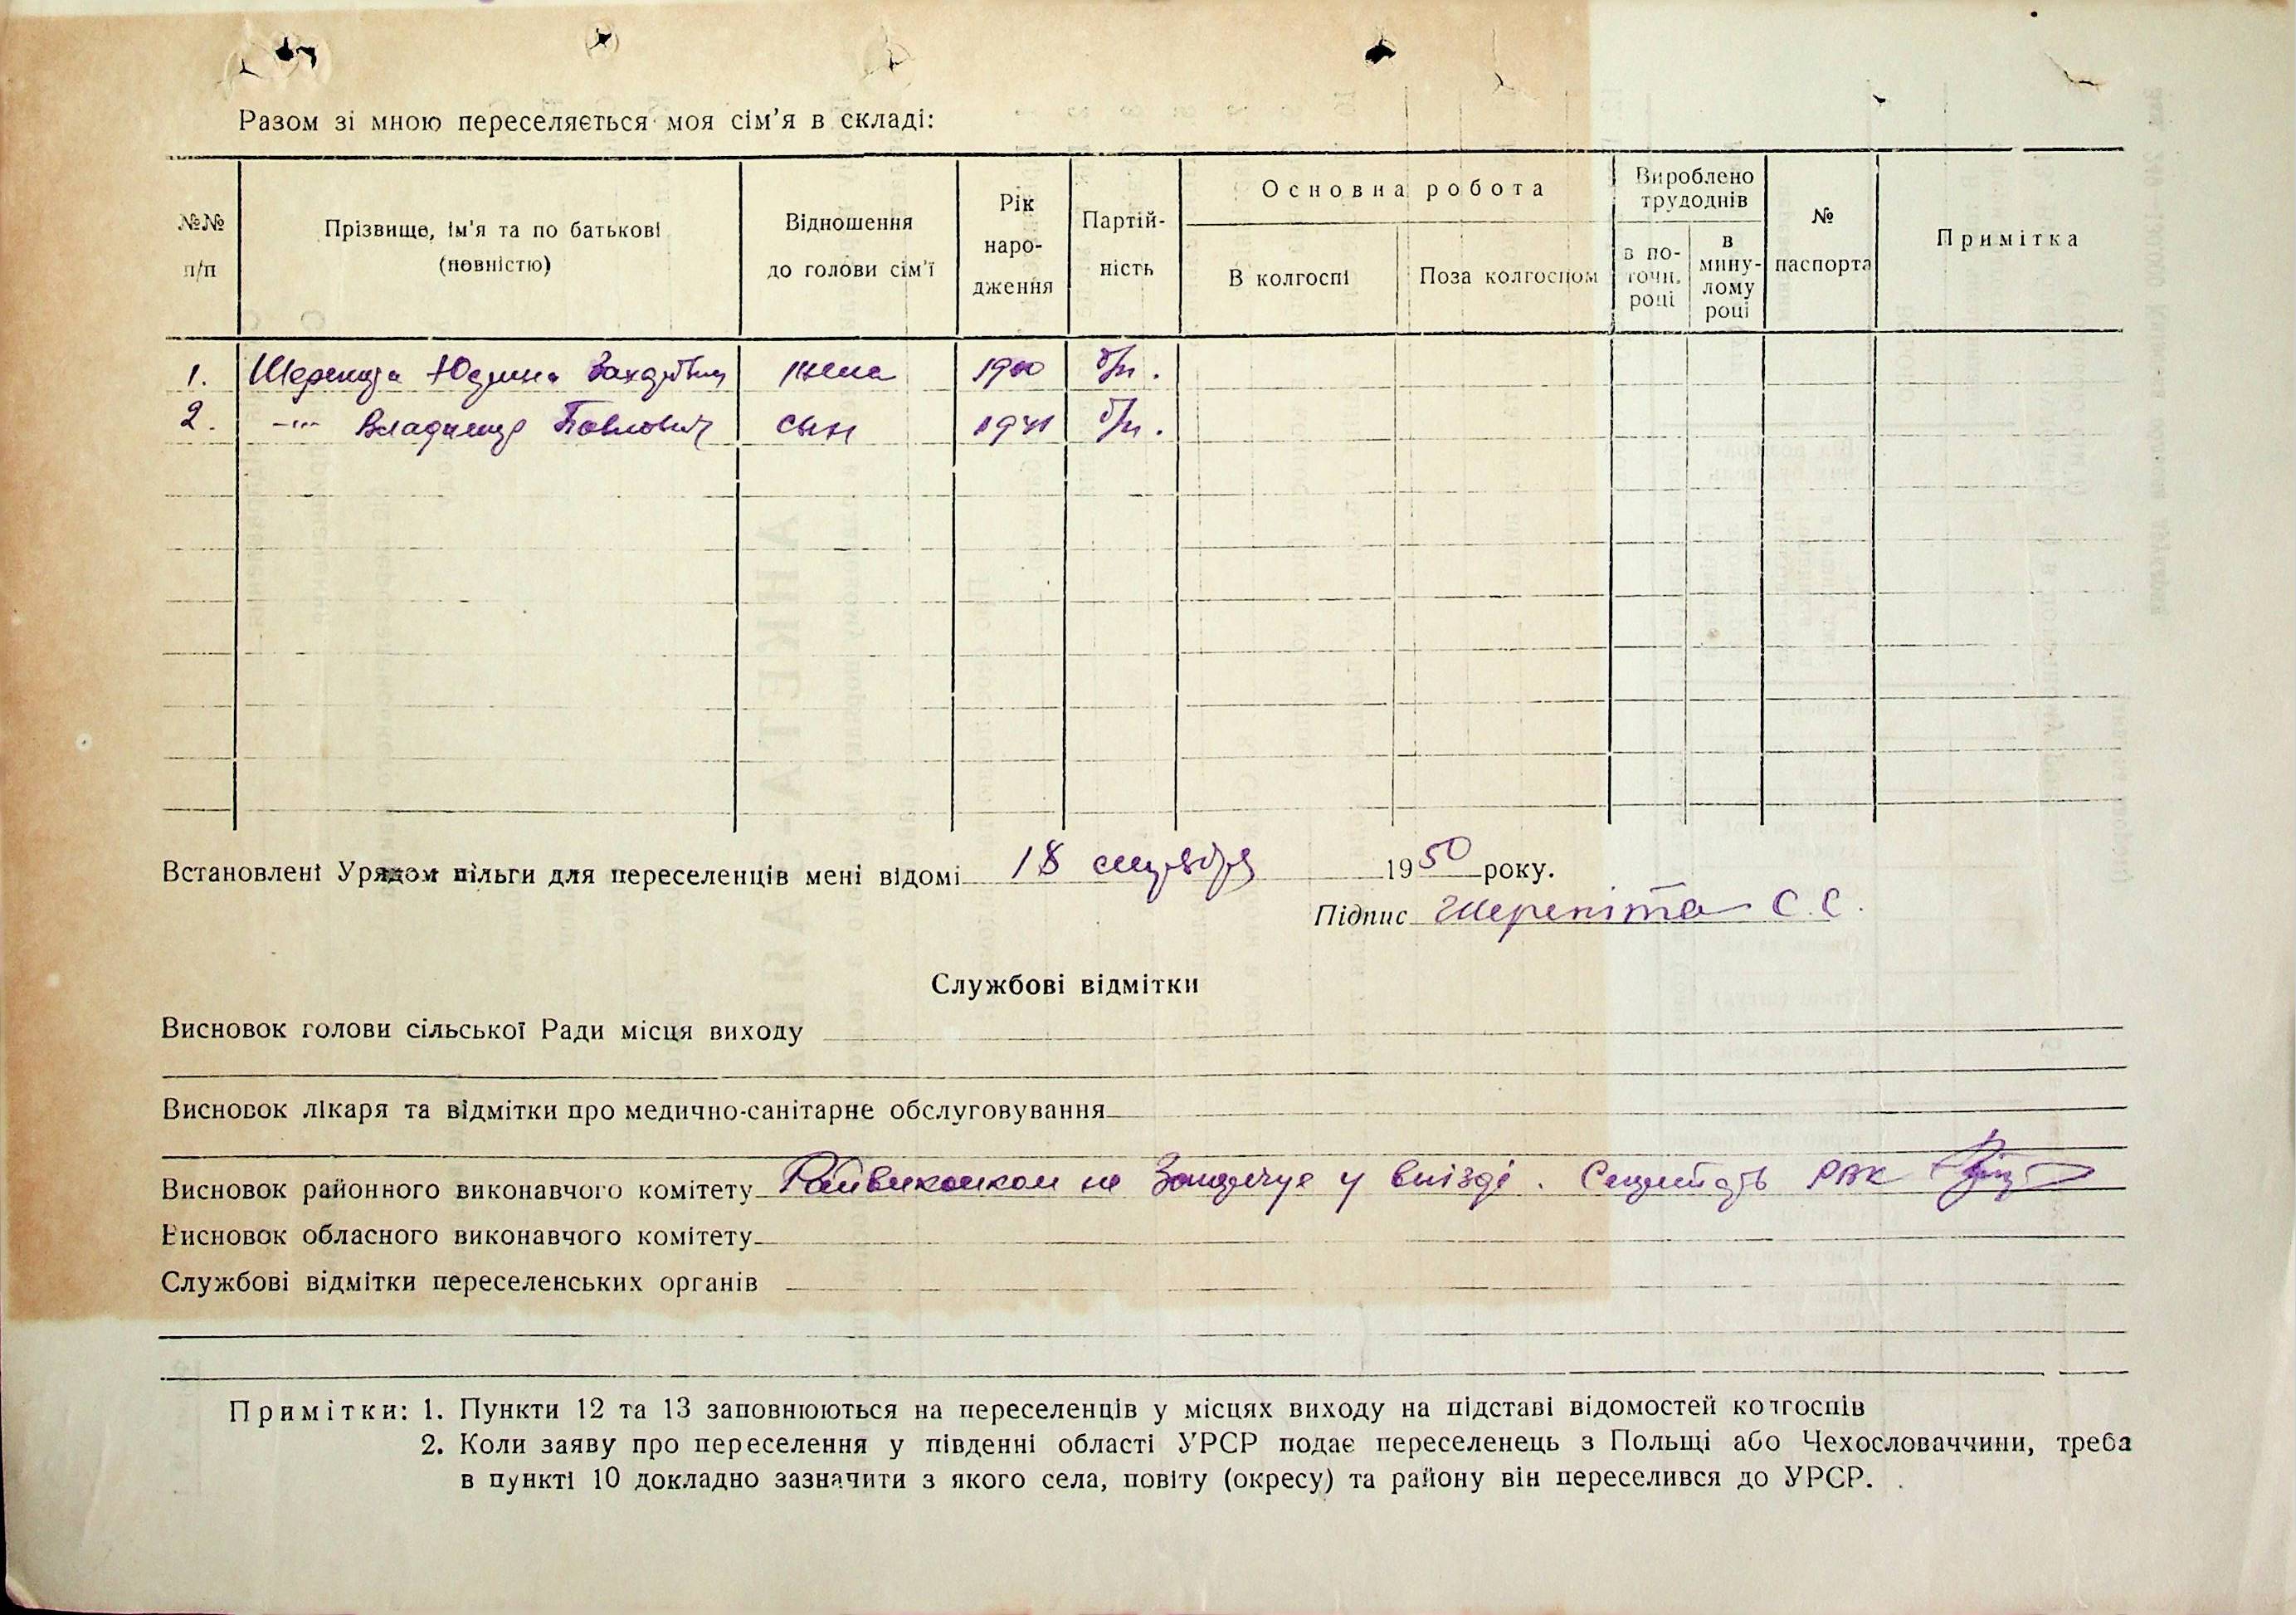 Разом зі мною переселяється моя сім'я в складі:
№№ п/п
Прізвище, ім'я та по батькові (повністю)
Відношення до голови сім'ї
Рік наро-дження
Партій-ність
Основна робота
В колгоспі
Поза колгоспом
Вироблено трудоднів
в по-точн. році
в мину-лому році
№ паспорта
Примітка
1. жена 1900 б/п.
2. -"- Владимир Павлович сын 1941 б/п.
Встановлені Урядом пільги для переселенців мені відомі 18 1950 року.
Підпис Шерепіта С. С.
Службові відмітки
Висновок голови сільської Ради місця виходу
Висновок лікаря та відмітки про медично-санітарне обслуговування
Висновок районного виконавчого комітету Райвиконком не у виїзді. Секретарь РВК
Висновок обласного виконавчого комітету
Службові відмітки переселенських органів
Примітки: 1. Пункти 12 та 13 заповнюються на переселенців у місцях виходу на підставі відомостей колгоспів
2. Коли заяву про переселення у південні області УРСР подає переселенець з Польщі або Чехословаччини, треба
в пункті 10 докладно зазначити з якого села, повіту (окресу) та району він переселився до УРСР.